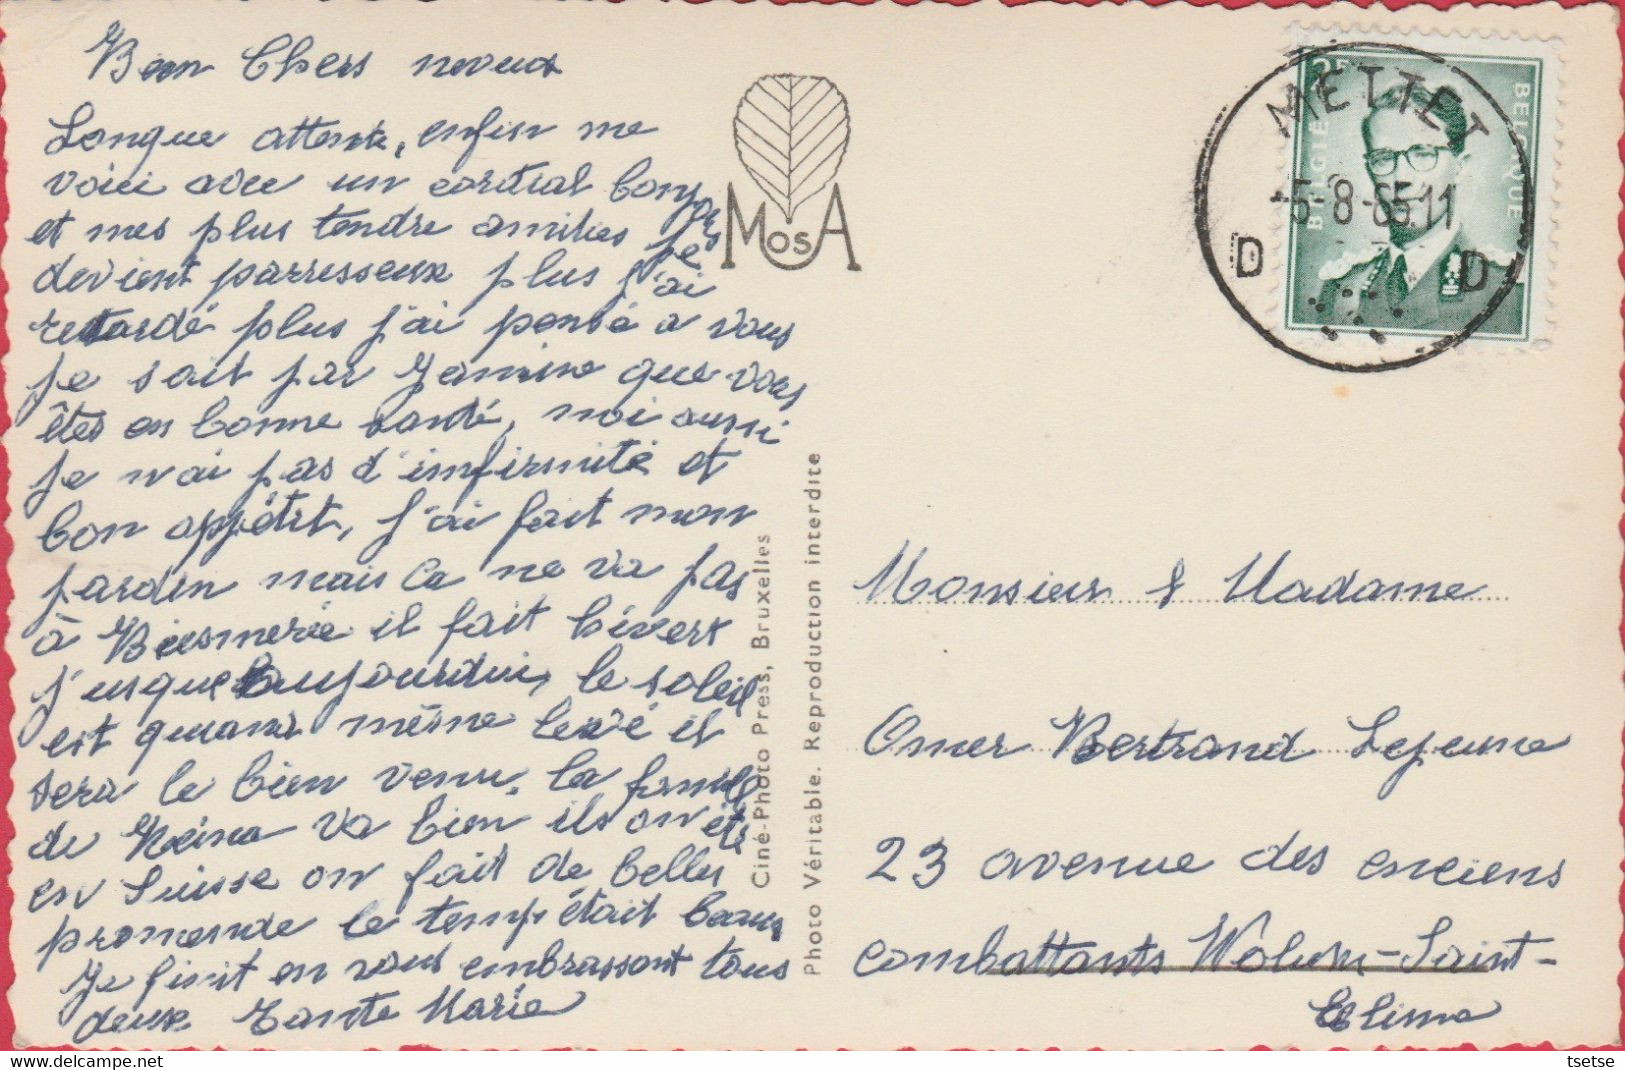 Bien Chers neveux
Longue attente, enfin me
voici avec un cordial bonjour
et mes plus tendre amitiés je
devient parresseux plus j'ai
retardé plus j'ai pensé a vous
je sait par Janine que vous
êtes en bonne santé, moi aussi
je n'ai pas d'infirmité et
bon appétit, j'ai fait mon
jardin mais ca ne va pas
à Biesmerée il fait hivert
j'usque aujourdui, le soleil
est quand même levé il
sera le bien venu, la famille
de va bien ils on été
en Suisse on fait de belles
promende le temp était beau
Je finit en vous embrassant tous
deux Tante Marie
MOSA
Ciné-Photo Press, Bruxelles
Photo Véritable. Reproduction interdite
BELGIE BELGIQUE
3F
METTET
-5-8-65.11
D D
Monsieur & Madame
Omer Bertrand Lejeune
23 avenue des enciens
combattants Woluwe-Saint-
tsetse